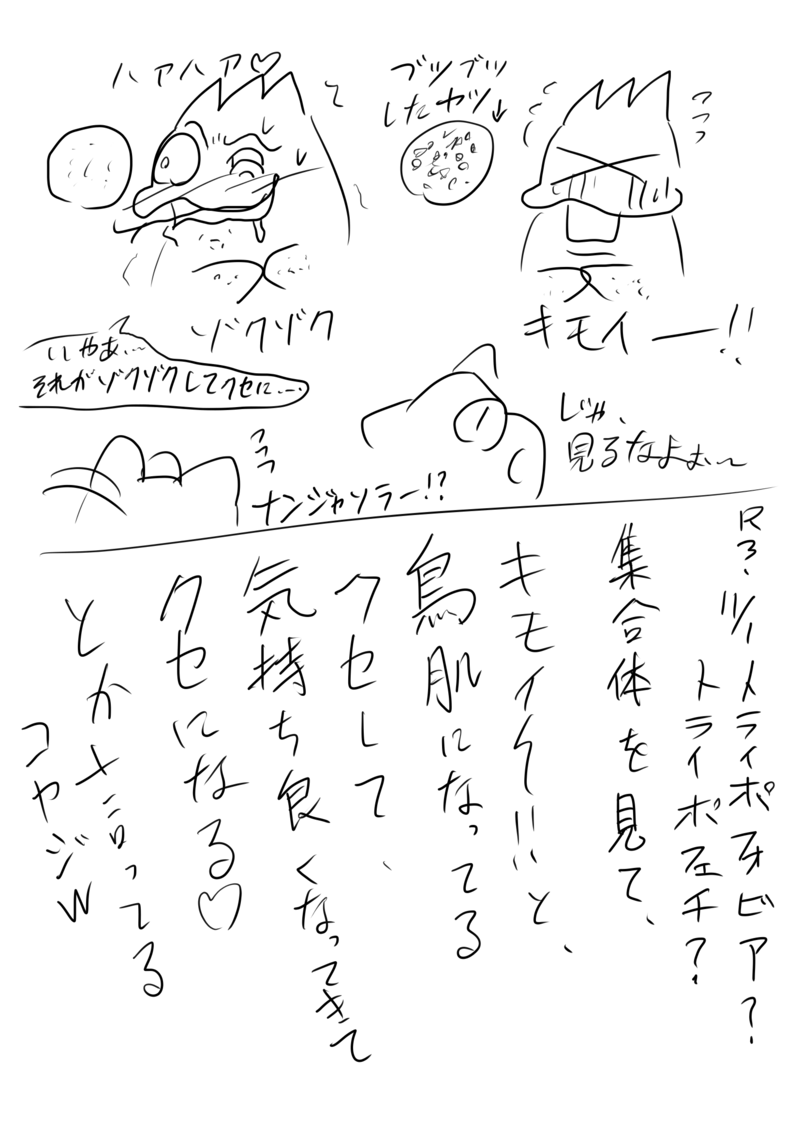 ブツブツ
したヤツ↓
フフフ
キモイー!!
ハアハア♡
ゾクゾク
じゃ、
見るなよぉ〜
いやあ…
それがゾクゾクしてクセに…
フフフ
ナンジャソラー!?
R3.
トライポフォビア?
トライポフェチ?
集合体を見て、
キモイ〜!!と、
鳥肌になってる
クセして、
気持ち良くなってきて
クセになる♡
とか言ってる
コヤジW